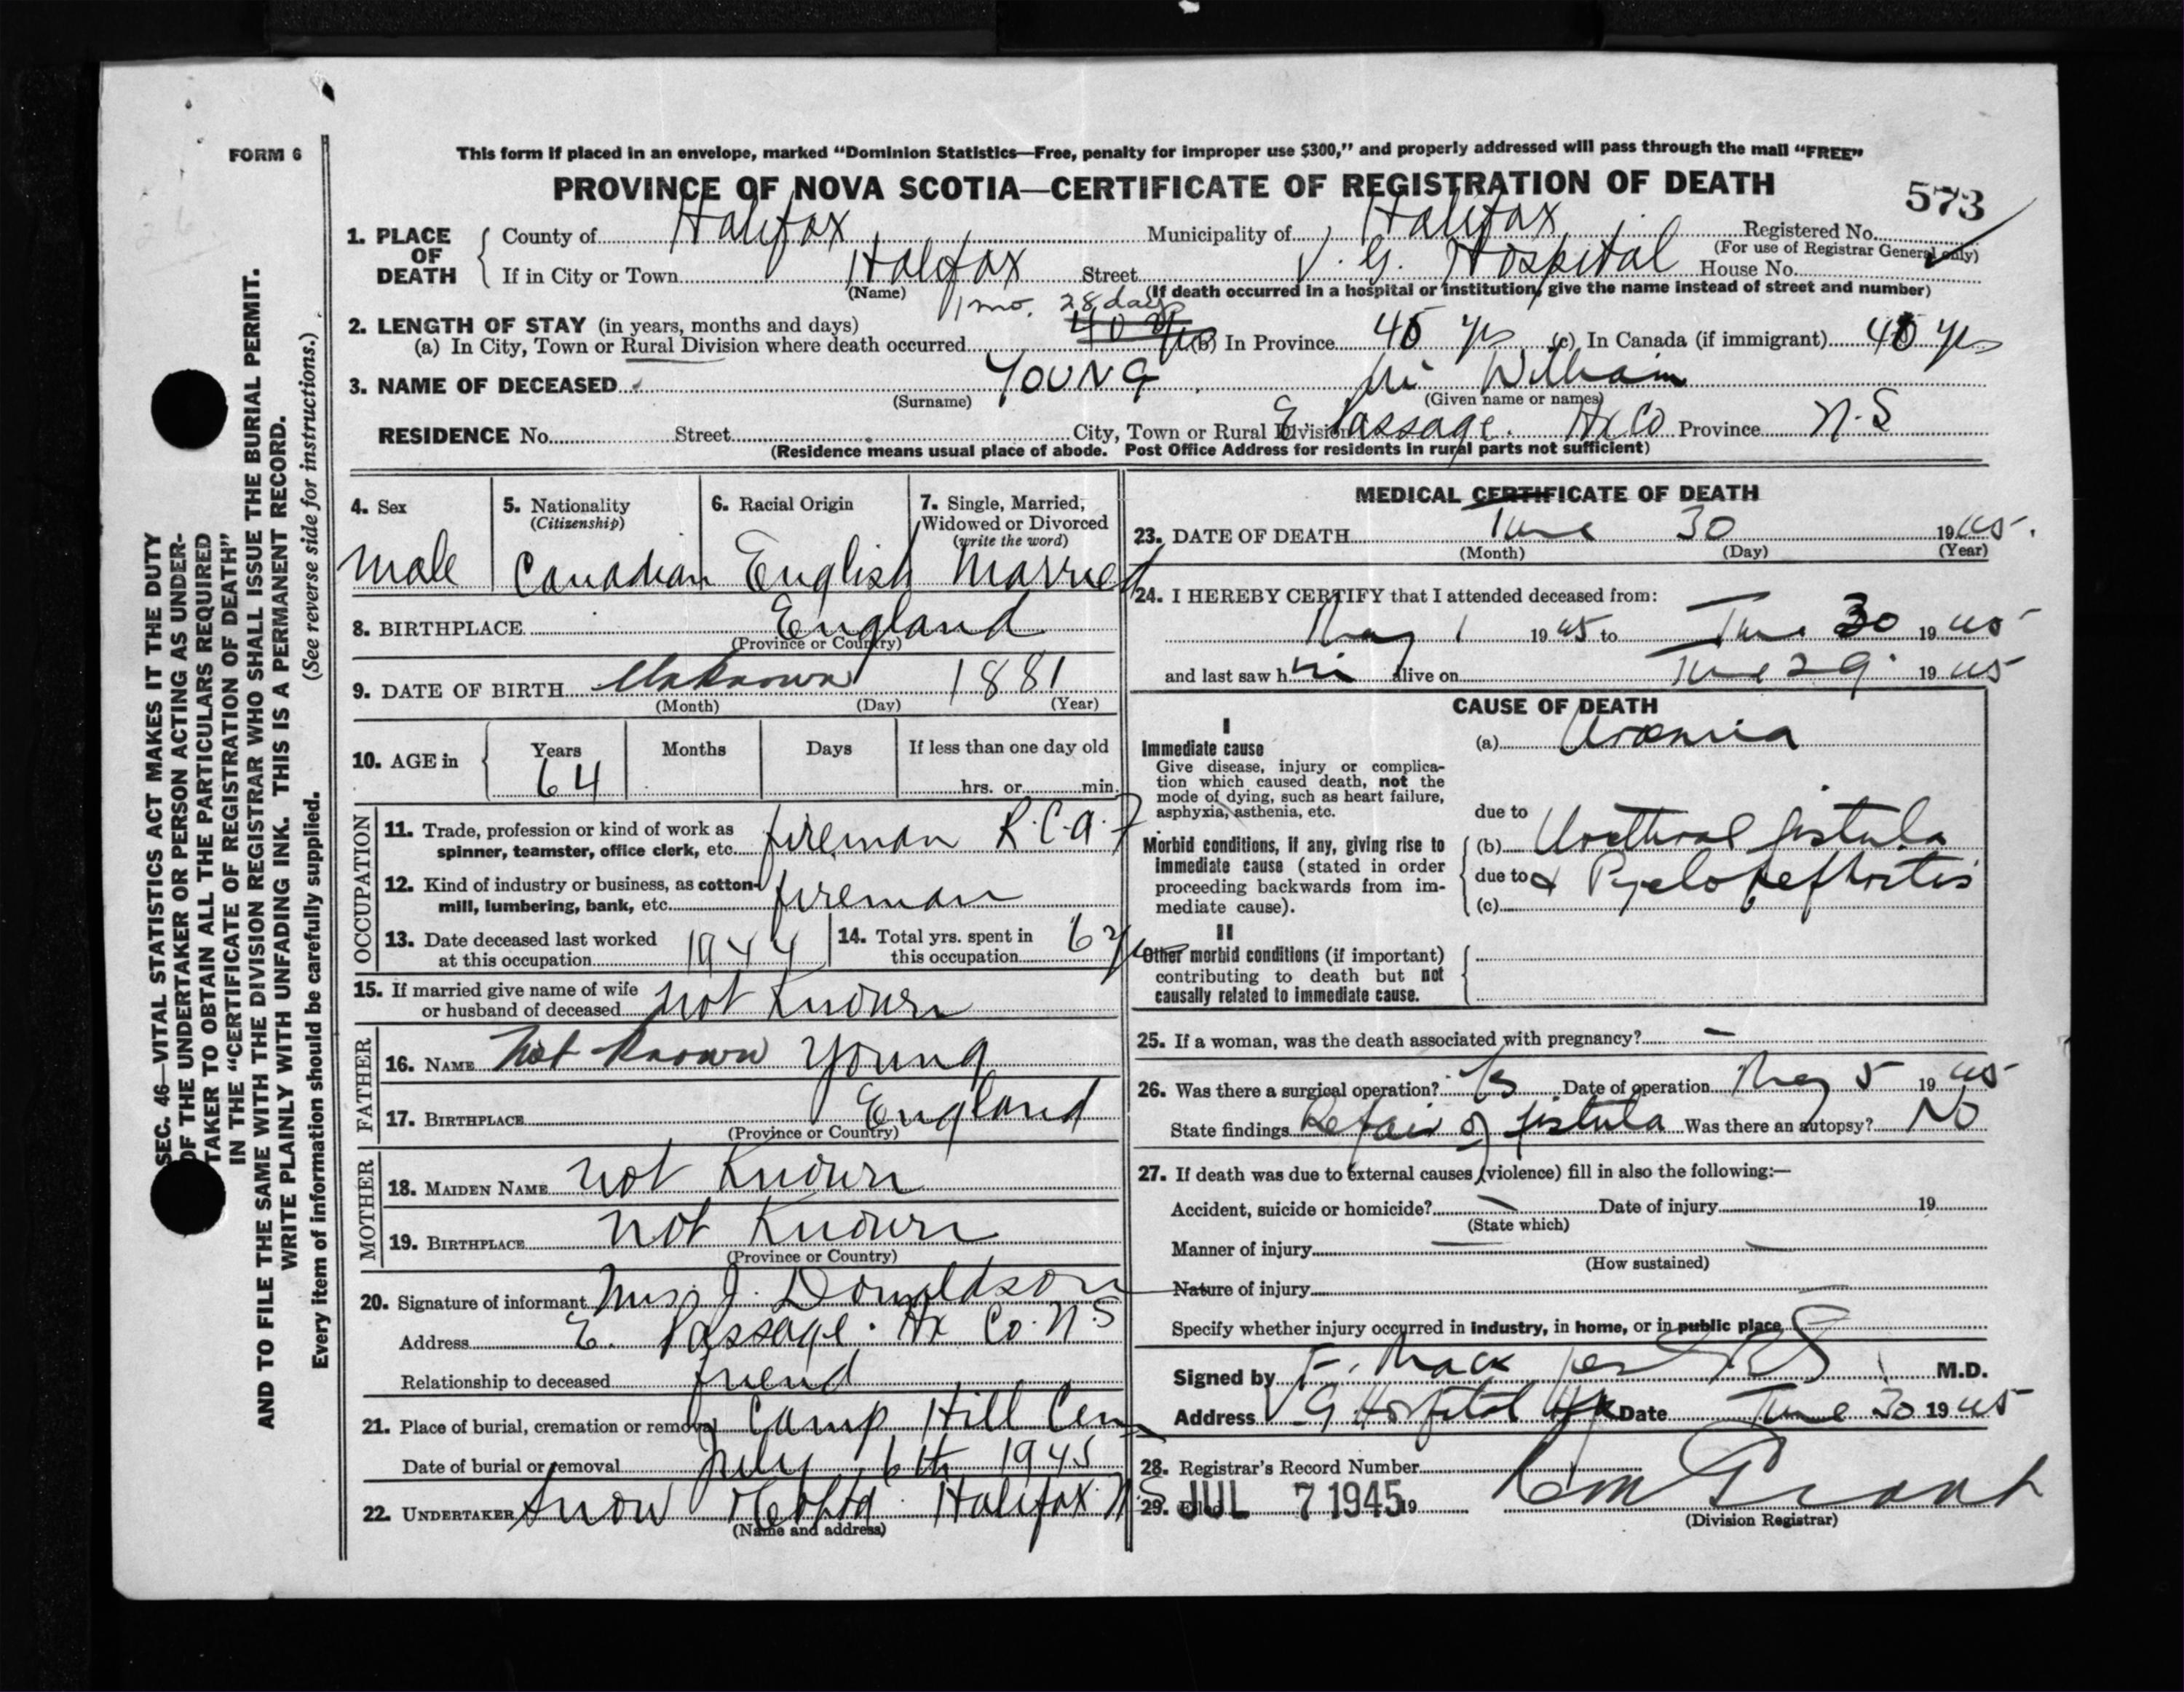 FORM 6
This form if placed in an envelope, marked "Dominion Statistics—Free, penalty for improper use $300," and properly addressed will pass through the mail "FREE"
PROVINCE OF NOVA SCOTIA—CERTIFICATE OF REGISTRATION OF DEATH
573
1. PLACE OF DEATH
County of Halifax Municipality of Halifax Registered No.
(For use of Registrar General only)
If in City or Town Halifax Street V. G. Hospital House No.
(Name) (If death occurred in a hospital or institution, give the name instead of street and number)
1 mo. 28 days
2. LENGTH OF STAY (in years, months and days)
(a) In City, Town or Rural Division where death occurred 40 yrs (b) In Province 40 yrs (c) In Canada (if immigrant) 40 yrs
3. NAME OF DECEASED YOUNG William
(Surname) (Given name or names)
RESIDENCE No. Street City, Town or Rural Division E. Passage. Hx Co Province N.S
(Residence means usual place of abode. Post Office Address for residents in rural parts not sufficient)
4. Sex
male
5. Nationality
(Citizenship)
Canadian
6. Racial Origin
English
7. Single, Married,
Widowed or Divorced
(write the word)
Married
8. BIRTHPLACE England
(Province or Country)
9. DATE OF BIRTH Unknown 1881
(Month) (Day) (Year)
10. AGE in
Years Months Days If less than one day old
64 hrs. or min.
OCCUPATION
11. Trade, profession or kind of work as
spinner, teamster, office clerk, etc. fireman R.C.A.F
12. Kind of industry or business, as cotton-
mill, lumbering, bank, etc. fireman
13. Date deceased last worked
at this occupation 1944
14. Total yrs. spent in
this occupation 6 yrs
15. If married give name of wife
or husband of deceased not Known
FATHER
16. NAME Not known Young
17. BIRTHPLACE England
(Province or Country)
MOTHER
18. MAIDEN NAME not Known
19. BIRTHPLACE not Known
(Province or Country)
20. Signature of informant J. Donaldson
Address E. Passage. Hx Co. N.S
Relationship to deceased friend
21. Place of burial, cremation or removal Camp Hill Cem
Date of burial or removal July 6th 1945
22. UNDERTAKER Snow Halifax N.S
(Name and address)
MEDICAL CERTIFICATE OF DEATH
23. DATE OF DEATH June 30 1945.
(Month) (Day) (Year)
24. I HEREBY CERTIFY that I attended deceased from:
May 1 1945 to June 30 1945
and last saw him alive on June 29. 1945
CAUSE OF DEATH
I
Immediate cause
Give disease, injury or complica-
tion which caused death, not the
mode of dying, such as heart failure,
asphyxia, asthenia, etc.
(a) Uraemia
due to
Morbid conditions, if any, giving rise to
immediate cause (stated in order
proceeding backwards from im-
mediate cause).
(b) Urethral fistula
due to & Pyelonephritis
(c)
II
Other morbid conditions (if important)
contributing to death but not
causally related to immediate cause.
25. If a woman, was the death associated with pregnancy? —
26. Was there a surgical operation? Yes Date of operation May 5 1945
State findings Repair of fistula Was there an autopsy? No
27. If death was due to external causes (violence) fill in also the following:—
Accident, suicide or homicide? Date of injury 19
(State which)
Manner of injury
(How sustained)
Nature of injury
Specify whether injury occurred in industry, in home, or in public place
Signed by F. Mack M.D.
Address V G Hospital Hfx Date June 30 1945
28. Registrar's Record Number
29. Filed JUL 7 1945 19
(Division Registrar)
SEC. 46—VITAL STATISTICS ACT MAKES IT THE DUTY
OF THE UNDERTAKER OR PERSON ACTING AS UNDER-
TAKER TO OBTAIN ALL THE PARTICULARS REQUIRED
IN THE "CERTIFICATE OF REGISTRATION OF DEATH"
AND TO FILE THE SAME WITH THE DIVISION REGISTRAR WHO SHALL ISSUE THE BURIAL PERMIT.
WRITE PLAINLY WITH UNFADING INK. THIS IS A PERMANENT RECORD.
Every item of information should be carefully supplied. (See reverse side for instructions.)